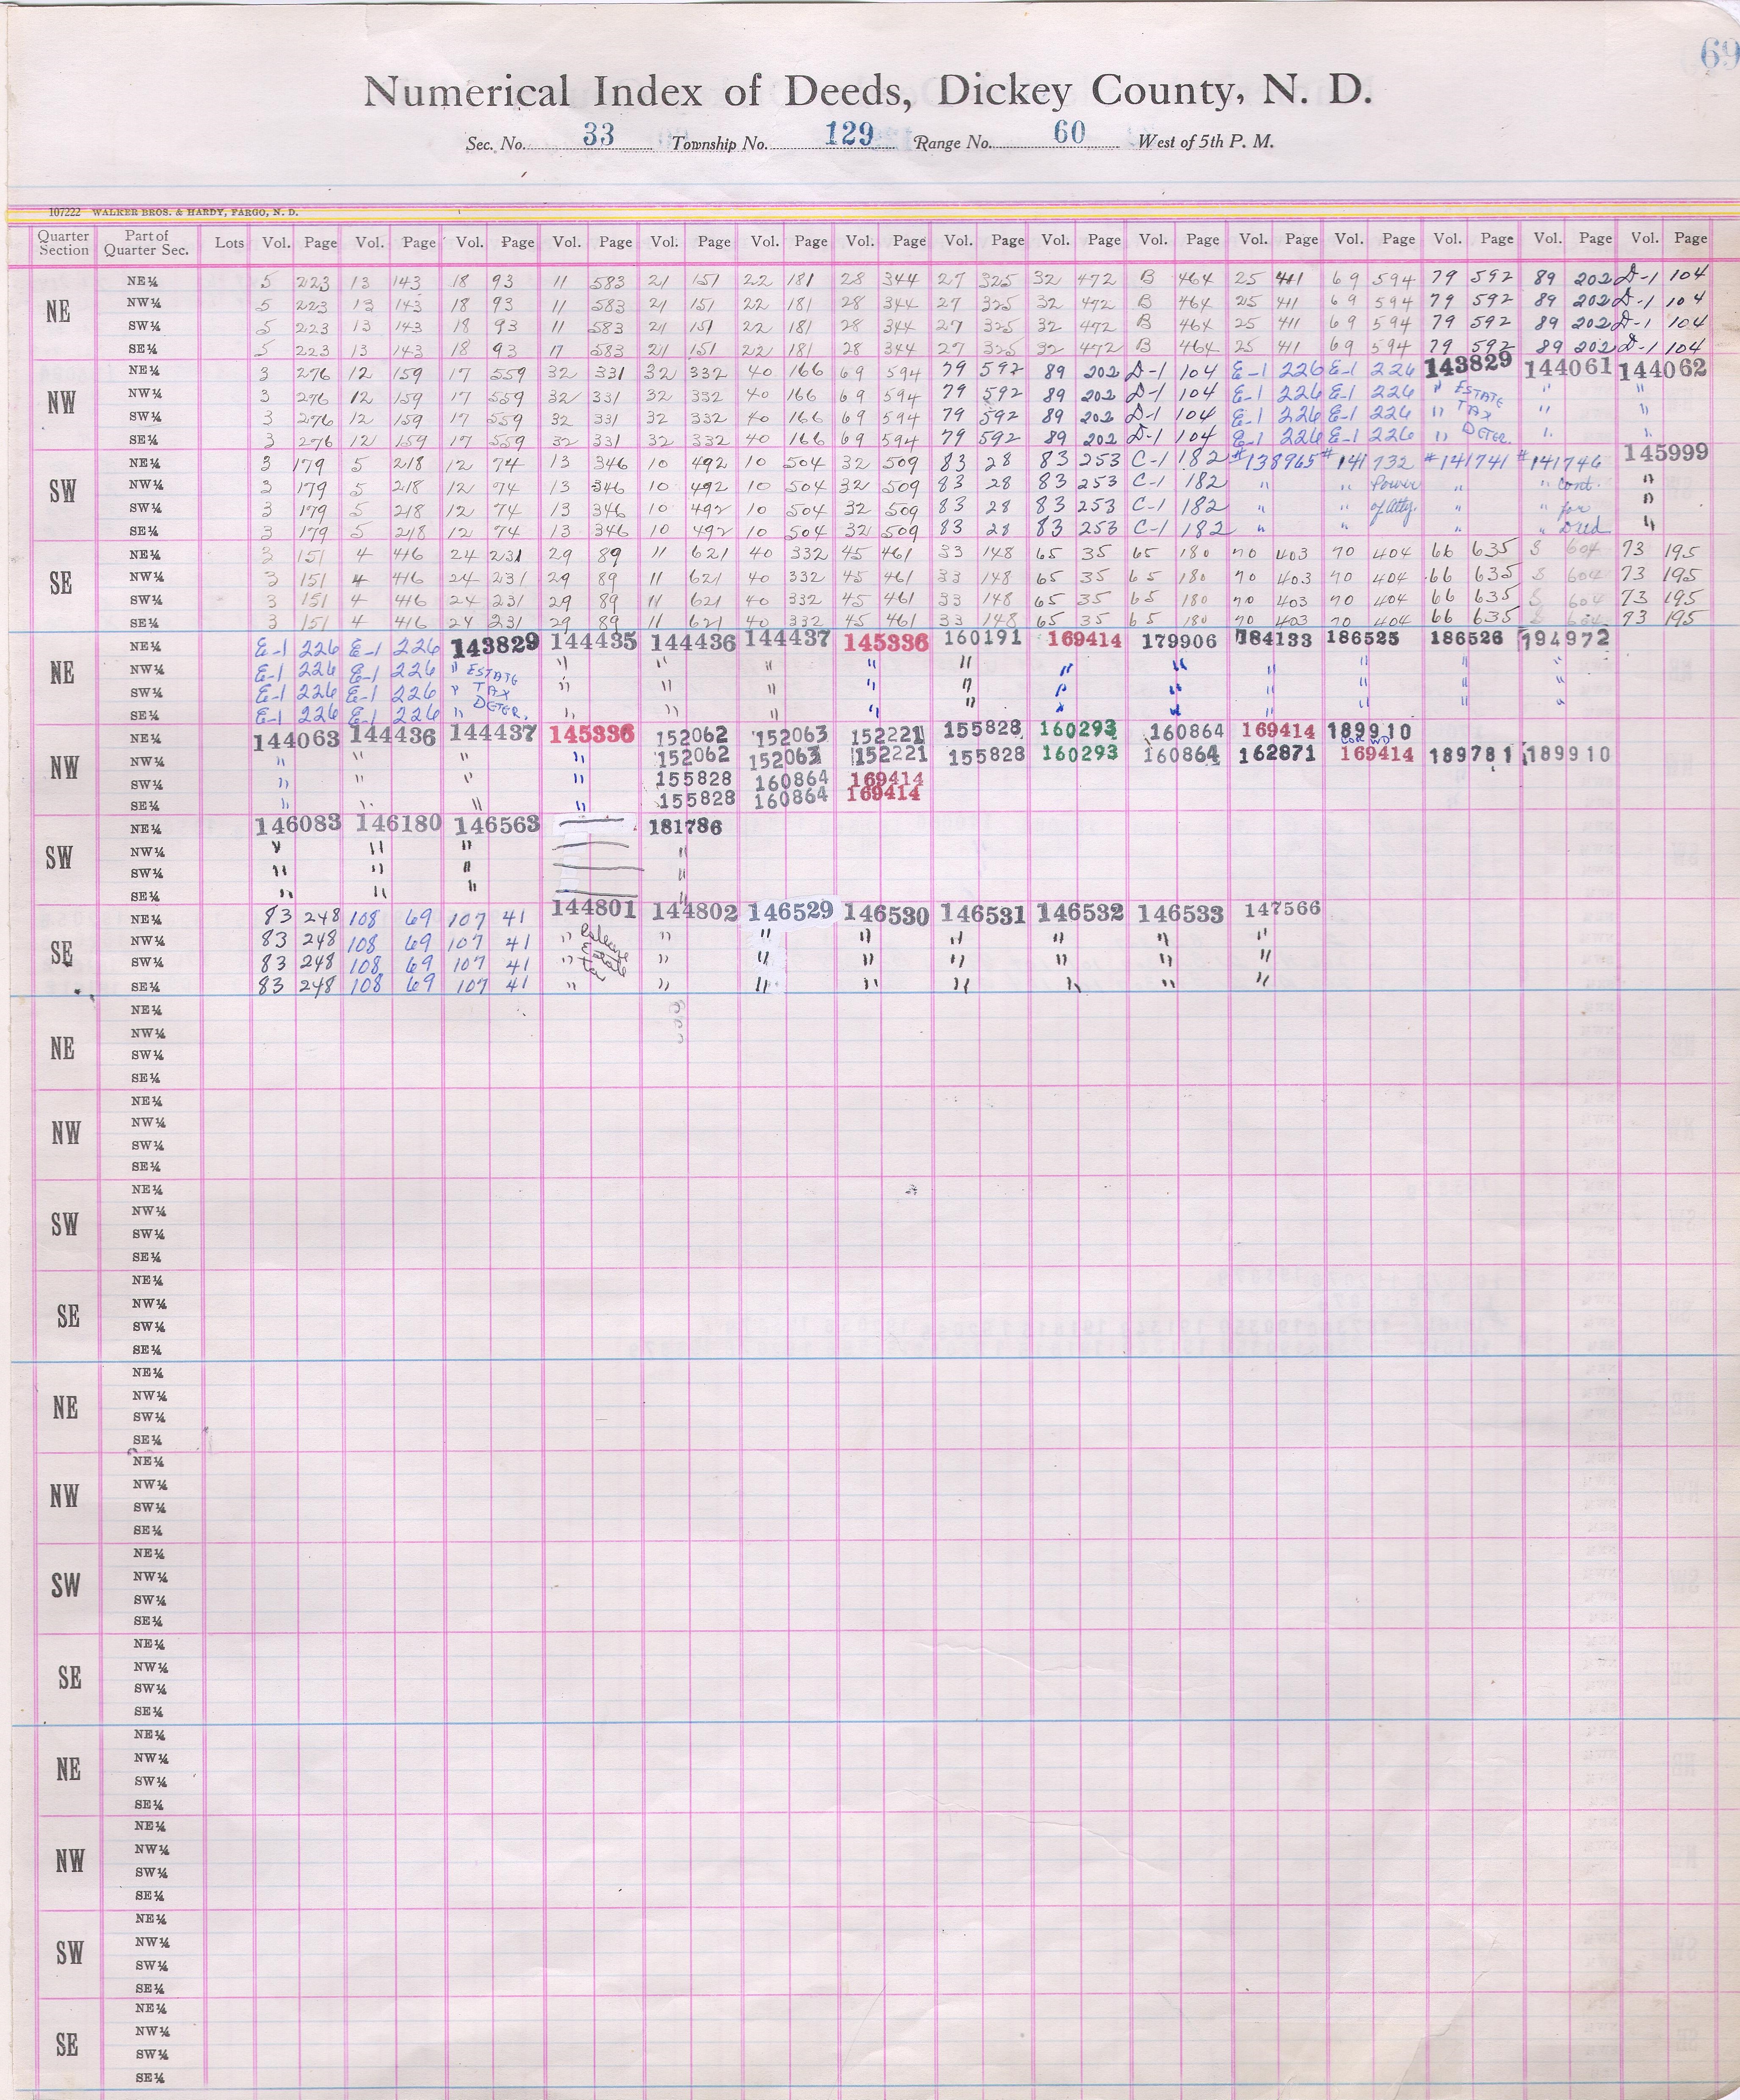 69
Numerical Index of Deeds, Dickey County, N. D.
Sec. No. 33 Township No. 129 Range No. 60 West of 5th P. M.
107222 WALKER BROS. & HARDY, FARGO, N. D.
Quarter Section Part of Quarter Sec. Lots Vol. Page Vol. Page Vol. Page Vol. Page Vol. Page Vol. Page Vol. Page Vol. Page Vol. Page Vol. Page Vol. Page Vol. Page Vol. Page Vol. Page Vol. Page
NE
NE¼ 5 223 13 143 18 93 11 583 21 151 22 181 28 344 27 325 32 472 B 464 25 411 69 594 79 592 89 202 D-1 104
NW¼ 5 223 13 143 18 93 11 583 21 151 22 181 28 344 27 325 32 472 B 464 25 411 69 594 79 592 89 202 D-1 104
SW¼ 5 223 13 143 18 93 11 583 21 151 22 181 28 344 27 325 32 472 B 464 25 411 69 594 79 592 89 202 D-1 104
SE¼ 5 223 13 143 18 93 17 583 21 151 22 181 28 344 27 325 32 472 B 464 25 411 69 594 79 592 89 202 D-1 104
NW
NE¼ 3 276 12 159 17 559 32 331 32 332 40 166 69 594 79 592 89 202 D-1 104 E-1 226 E-1 226 143829 144061 144062
NW¼ 3 276 12 159 17 559 32 331 32 332 40 166 69 594 79 592 89 202 D-1 104 E-1 226 E-1 226 " ESTATE " "
SW¼ 3 276 12 159 17 559 32 331 32 332 40 166 69 594 79 592 89 202 D-1 104 E-1 226 E-1 226 " TAX " "
SE¼ 3 276 12 159 17 559 32 331 32 332 40 166 69 594 79 592 89 202 D-1 104 E-1 226 E-1 226 " DETER. " "
SW
NE¼ 3 179 5 218 12 74 13 346 10 492 10 504 32 509 83 28 83 253 C-1 182 #138965 #141732 #141741 #141746 145999
NW¼ 3 179 5 218 12 74 13 346 10 492 10 504 32 509 83 28 83 253 C-1 182 " " Power " " Cont. "
SW¼ 3 179 5 218 12 74 13 346 10 492 10 504 32 509 83 28 83 253 C-1 182 " " of Atty. " " for "
SE¼ 3 179 5 218 12 74 13 346 10 492 10 504 32 509 83 28 83 253 C-1 182 " " " " Deed "
SE
NE¼ 3 151 4 416 24 231 29 89 11 621 40 332 45 461 33 148 65 35 65 180 70 403 70 404 66 635 S 604 73 195
NW¼ 3 151 4 416 24 231 29 89 11 621 40 332 45 461 33 148 65 35 65 180 70 403 70 404 66 635 S 604 73 195
SW¼ 3 151 4 416 24 231 29 89 11 621 40 332 45 461 33 148 65 35 65 180 70 403 70 404 66 635 S 604 73 195
SE¼ 3 151 4 416 24 231 29 89 11 621 40 332 45 461 33 148 65 35 65 180 70 403 70 404 66 635 S 604 73 195
NE
NE¼ E-1 226 E-1 226 143829 144435 144436 144437 145336 160191 169414 179906 184133 186525 186526 194972
NW¼ E-1 226 E-1 226 " ESTATE " " " " " " " " " " "
SW¼ E-1 226 E-1 226 " TAX " " " " " " " " " " "
SE¼ E-1 226 E-1 226 " DETER. " " " " " " " " " " "
NW
NE¼ 144063 144436 144437 145336 152062 152063 152221 155828 160293 160864 169414 189910
COR WD
NW¼ " " " " 152062 152063 152221 155828 160293 160864 162871 169414 189781 189910
SW¼ " " " " 155828 160864 169414
SE¼ " " " " 155828 160864 169414
SW
NE¼ 146083 146180 146563 181786
NW¼ " " " "
SW¼ " " " "
SE¼ " " " "
SE
NE¼ 83 248 108 69 107 41 144801 144802 146529 146530 146531 146532 146533 147566
NW¼ 83 248 108 69 107 41 " " " " " " " "
SW¼ 83 248 108 69 107 41 " " " " " " " "
SE¼ 83 248 108 69 107 41 " " " " " " " "
NE
NE¼
NW¼
SW¼
SE¼
NW
NE¼
NW¼
SW¼
SE¼
SW
NE¼
NW¼
SW¼
SE¼
SE
NE¼
NW¼
SW¼
SE¼
NE
NE¼
NW¼
SW¼
SE¼
NW
NE¼
NW¼
SW¼
SE¼
SW
NE¼
NW¼
SW¼
SE¼
SE
NE¼
NW¼
SW¼
SE¼
NE
NE¼
NW¼
SW¼
SE¼
NW
NE¼
NW¼
SW¼
SE¼
SW
NE¼
NW¼
SW¼
SE¼
SE
NE¼
NW¼
SW¼
SE¼